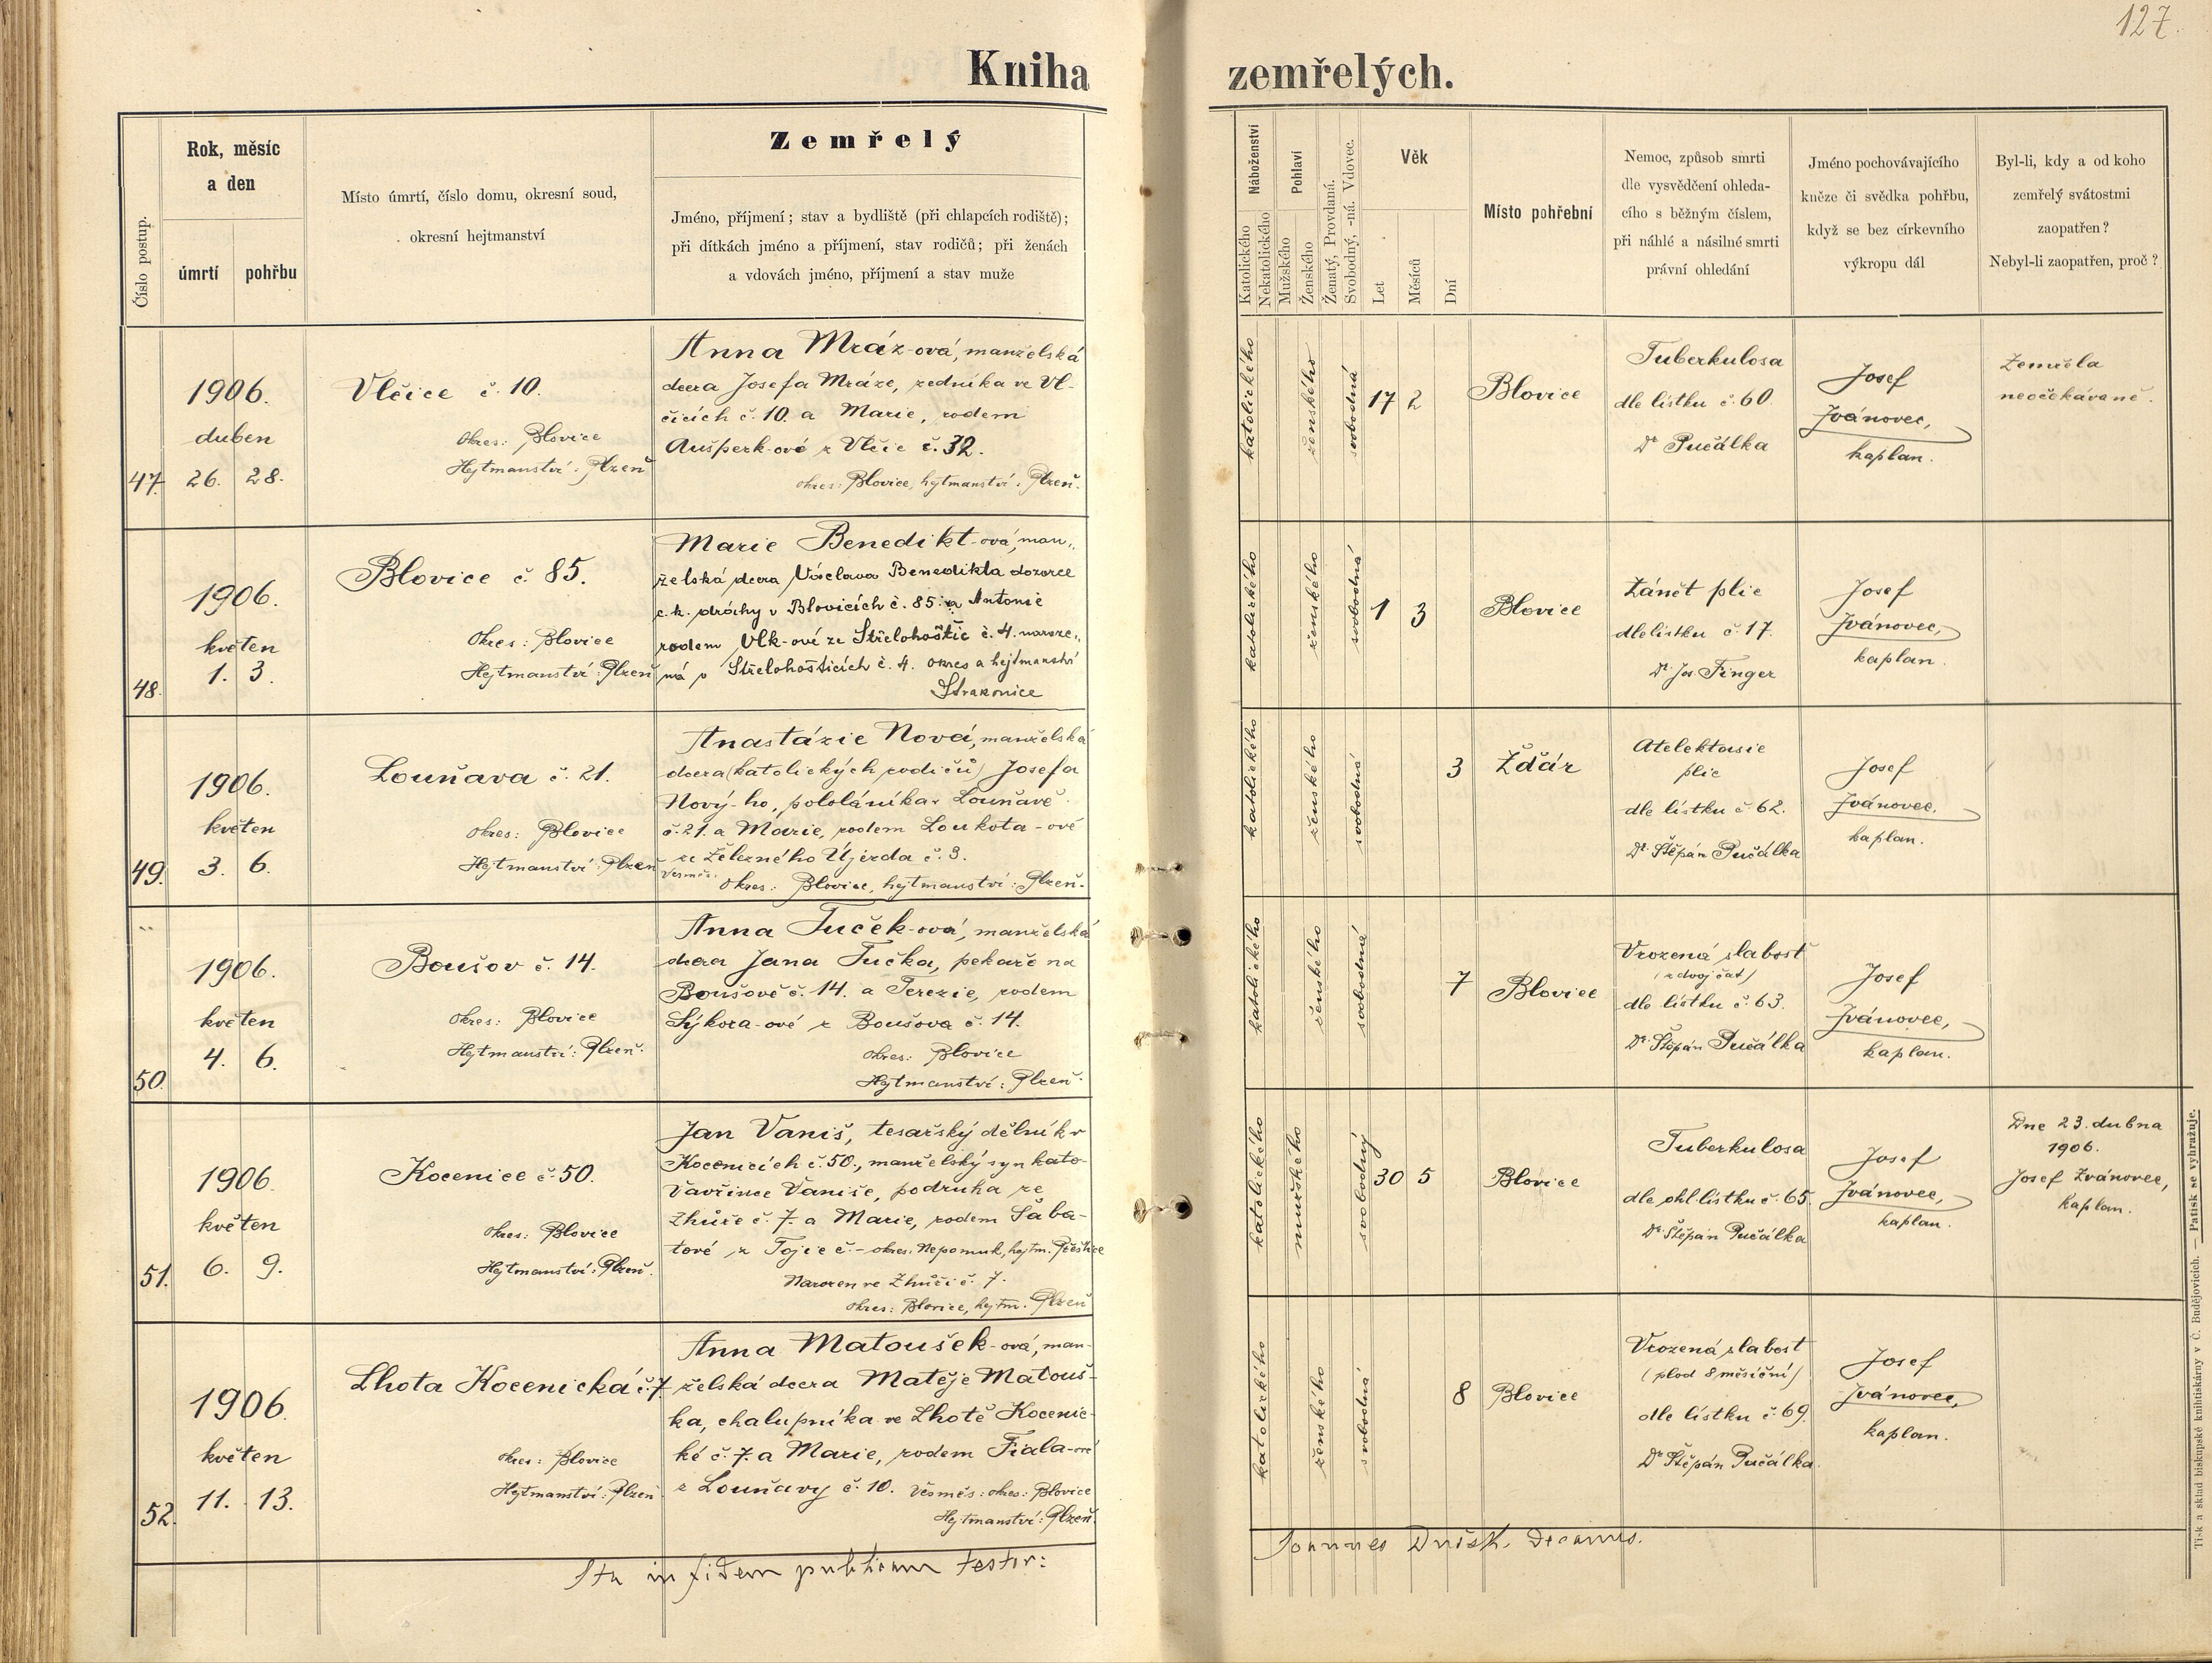 127.
Kniha zemřelých.
Číslo postup.
Rok, měsíc
a den
úmrtí
pohřbu
Místo úmrtí, číslo domu, okresní soud,
okresní hejtmanství
Zemřelý
Jméno, příjmení; stav a bydliště (při chlapcích rodiště);
při dítkách jméno a příjmení, stav rodičů; při ženách
a vdovách jméno, příjmení a stav muže
Náboženství
Katolického
Nekatolického
Pohlaví
Mužského
Ženského
Ženatý, Provdaná.
Svobodný, -ná. Vdovec.
Věk
Let
Měsíců
Dní
Místo pohřební
Nemoc, způsob smrti
dle vysvědčení ohleda-
cího s běžným číslem,
při náhlé a násilné smrti
právní ohledání
Jméno pochovávajícího
kněze či svědka pohřbu,
když se bez církevního
výkropu dál
Byl-li, kdy a od koho
zemřelý svátostmi
zaopatřen?
Nebyl-li zaopatřen, proč?
47.
1906.
duben
26. 28.
Vlčice č. 10.
Okres: Blovice
Hejtmanství: Plzeň
Anna Mráz-ová, manželská
dcera Josefa Mráze, zedníka ve Vl-
čicích č. 10. a Marie, rodem
Aušperk-ové z Vlčic č. 32.
okres: Blovice, hejtmanství: Plzeň.
katolického
ženského
svobodná
17 2
Blovice
Tuberkulosa
dle lístku č. 60.
Dr Pučálka
Josef
Jvánovec,
kaplan.
Zemřela
neočekávaně.
48.
1906.
květen
1. 3.
Blovice č. 85.
Okres: Blovice
Hejtmanství: Plzeň
Marie Benedikt-ová, man„
želská dcera Václava Benedikta dozorce
c.k. dráhy v Blovicích č. 85. a Antonie
rodem Vlk-ové ze Střelohoštic č. 4. naroze„
ná v Střelohošticích č. 4. okres a hejtmanství
Strakonice
katolického
ženského
svobodná
1 3
Blovice
Zánět plic
dle lístku č. 17.
Dr. Jos. Finger
Josef
Jvánovec,
kaplan.
49.
1906.
květen
3. 6.
Louňava č. 21.
Okres: Blovice
Hejtmanství: Plzeň
Anastázie Nová, manželská
dcera (katolických rodičů) Josefa
Nový-ho, pololáníka v Louňavě
č. 21. a Marie, rodem Loukota-ové
ze Železného Újezda č. 3.
Vesměs: okres: Blovice, hejtmanství: Plzeň.
katolického
ženského
svobodná
3
Ždár
Atelektasie
plic
dle lístku č. 62.
Dr. Štěpán Pučálka
Josef
Jvánovec,
kaplan.
50.
1906.
květen
4. 6.
Boušov č. 14.
Okres: Blovice
Hejtmanství: Plzeň.
Anna Tuček-ová, manželská
dcera Jana Tučka, pekaře na
Boušově č. 14. a Terezie, rodem
Sýkora-ové z Boušova č. 14.
okres: Blovice
Hejtmanství: Plzeň.
katolického
ženského
svobodná
7
Blovice
Vrozená slabost
(z dvojčat)
dle lístku č. 63.
Dr. Štěpán Pučálka
Josef
Jvánovec,
kaplan.
51.
1906.
květen
6. 9.
Kocenice č. 50.
Okres: Blovice
Hejtmanství: Plzeň.
Jan Vaniš, tesařský dělník v
Kocenicích č. 50., manželský syn kato-
Vavřince Vaniše, podruha ze
Zhůře č. 7. a Marie, rodem Šaba-
tové, z Tojic č. - okres. Nepomuk, hejtm. Přeštice
Narozen ve Zhůři č. 7.
okres: Blovice, hejtm. Plzeň
katolického
mužského
svobodný
30 5
Blovice
Tuberkulosa
dle ohl. lístku č. 65.
Dr. Štěpán Pučálka
Josef
Jvánovec,
kaplan.
Dne 23. dubna
1906.
Josef Jvánovec,
kaplan.
52.
1906.
květen
11. 13.
Lhota Kocenická č. 7
okres: Blovice
Hejtmanství: Plzeň
Anna Matoušek-ová, man-
želská dcera Matěje Matouš-
ka, chalupníka ve Lhotě Kocenic-
ké č. 7. a Marie, rodem Fiala-ové
z Louňavy č. 10. Vesměs: okres: Blovice
Hejtmanství: Plzeň.
katolického
ženského
svobodná
8
Blovice
Vrozená slabost
(plod 8 měsíční)
dle lístku č. 69.
Dr Štěpán Pučálka.
Josef
Jvánovec,
kaplan.
Ita in fidem publicam testor:
Joannes Decanus.
Tisk a sklad biskupské knihtiskárny v Č. Budějovicích. — Patisk se vyhražuje.